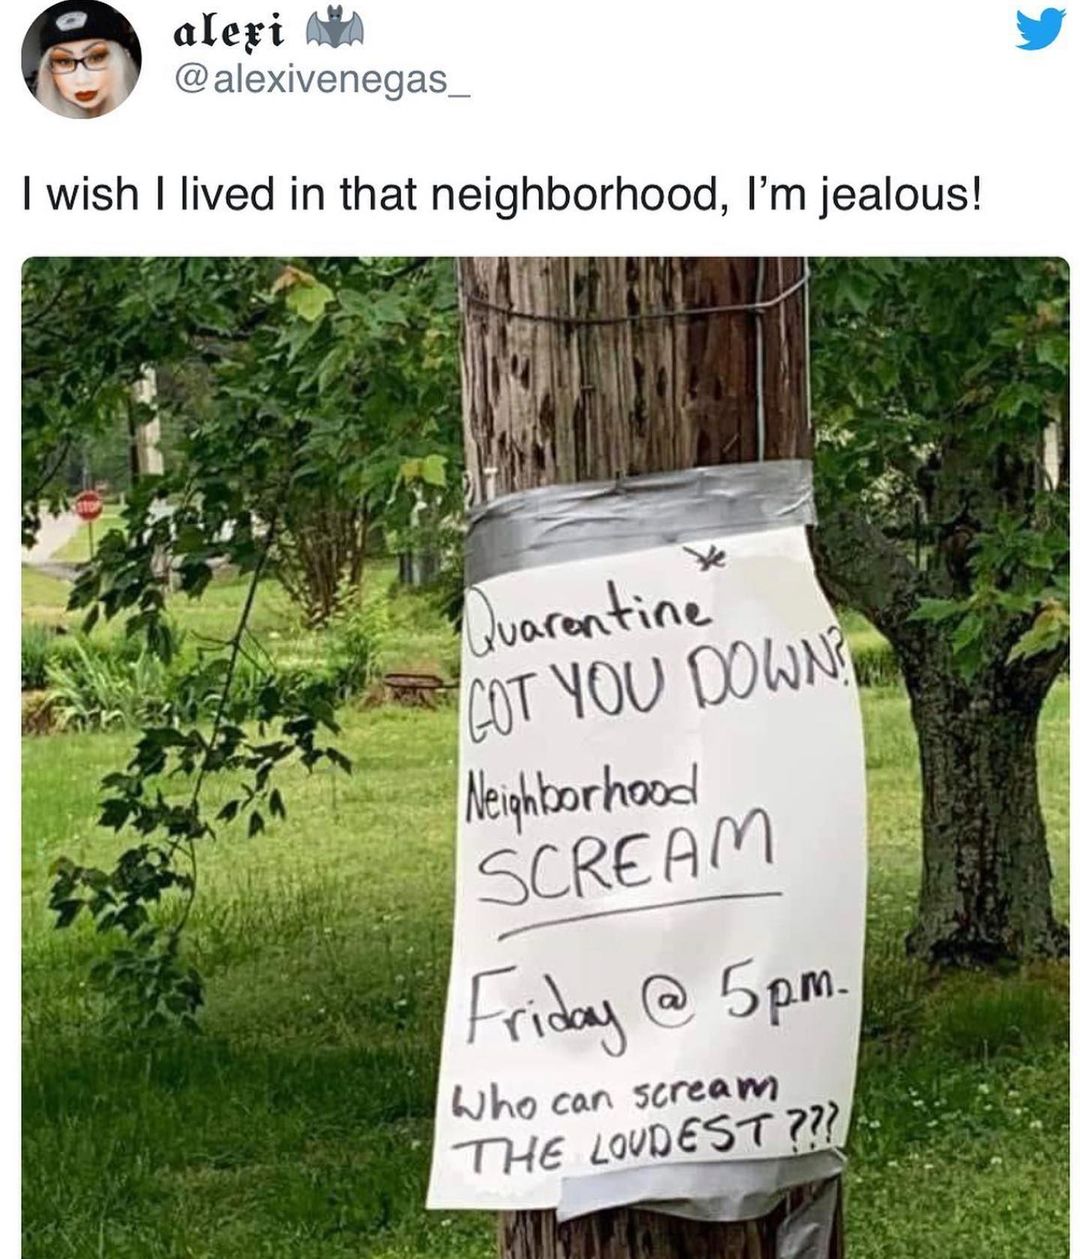 alexi 🦇
@alexivenegas_
I wish I lived in that neighborhood, I'm jealous!
STOP
Quarentine
GOT YOU DOWN?
Neighborhood
SCREAM
Friday @ 5p.m.
Who can scream
THE LOUDEST???